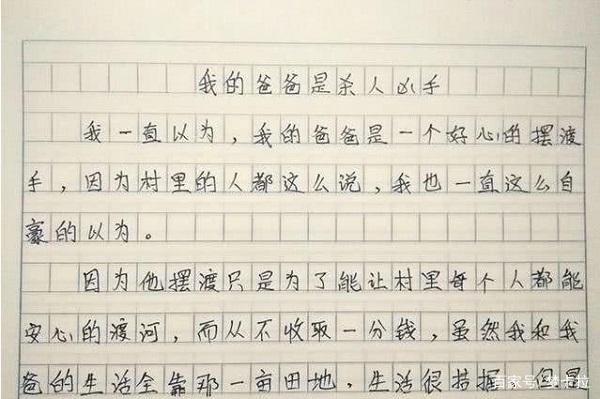 我的爸爸是杀人凶手
我一直以为，我的爸爸是一个好心的摆渡
手，因为村里的人都这么说，我也一直这么自
豪的以为。
因为他摆渡只是为了能让村里每个人都能
安心的渡河，而从不收取一分钱，虽然我和我
爸的生活全靠那一亩田地，生活很拮据，但是
百家号/梦卡拉